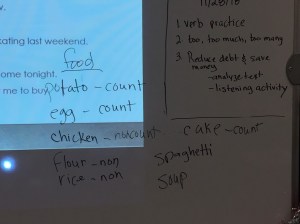 v.
cating last weekend.
ome tonight.
me to buy
food
potato - count
egg - count
chicken - noncount
flour - non
rice - non
11/28/18
1 verb practice
2 too, too much, too many
3 Reduce debt & save
money
- analyze text
- listening activity
cake - count
spaghetti
soup